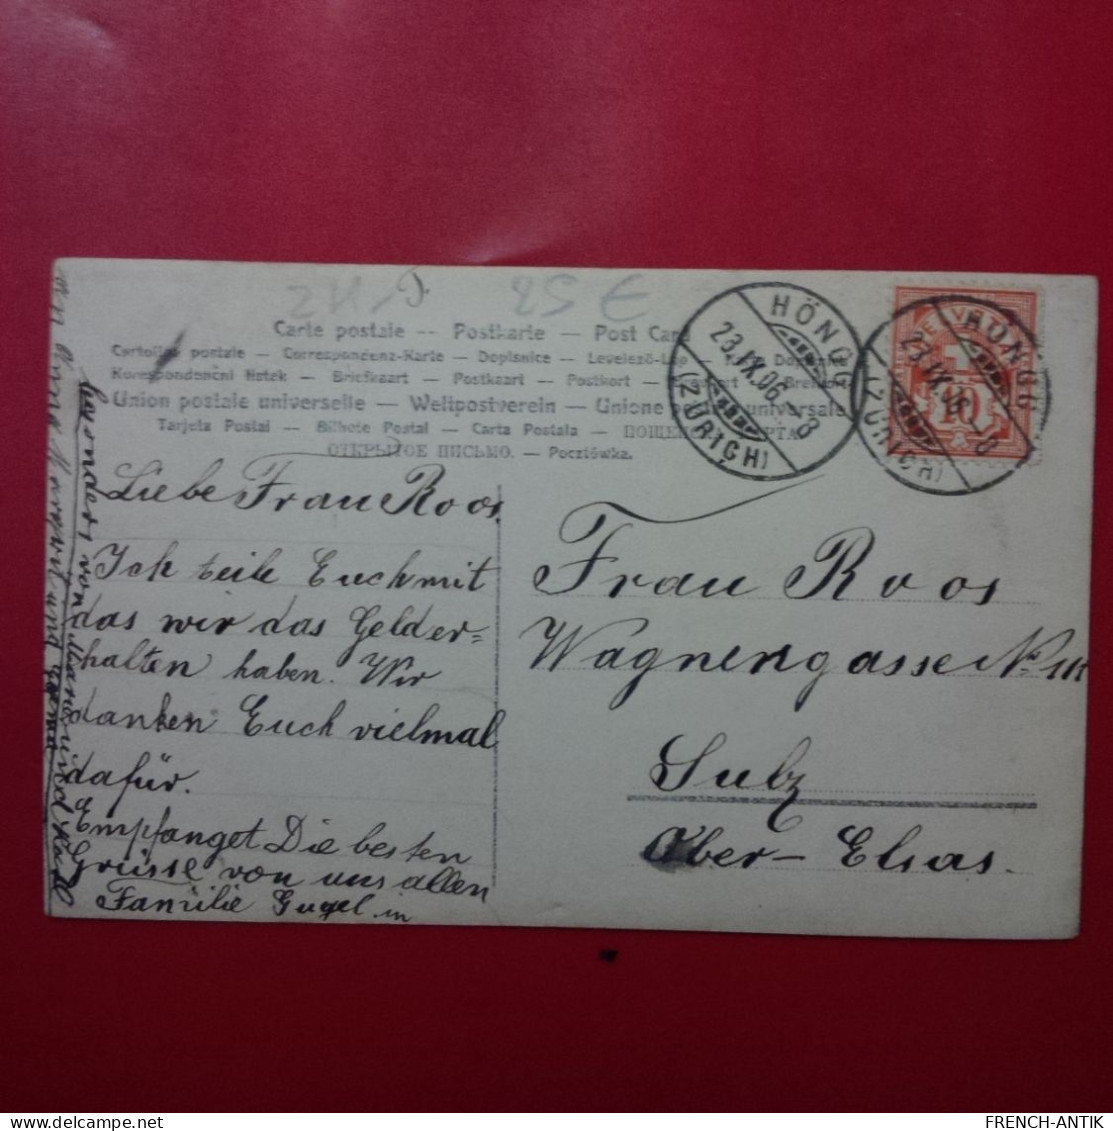 25 €
Carte postale -- Postkarte -- Post Card
Cartolina postale -- Correspondenz-Karte -- Dopisnice -- Levelező-Lap
Korespondenční listek -- Briefkaart -- Postkaart -- Postkort
Union postale universelle -- Weltpostverein -- Unione postale universale
Tarjeta Postal -- Bilhete Postal -- Carta Postala --
ОТКРЫТОЕ ПИСЬМО. -- Pocztówka.
HÖNGG
23.IX.06.-8
(ZÜRICH)
HÖNGG
23.IX.06.-8
(ZÜRICH)
10
Liebe Frau Roos.
Ich teile Euch mit
das wir das Gelder=
halten haben. Wir
danken Euch vielmal
dafür.
Empfanget Die besten
Grüsse von uns allen
Familie Gugel in
Frau Roos
Wagnergasse No 111
Sulz
Ober-Elsas.
FRENCH-ANTIK